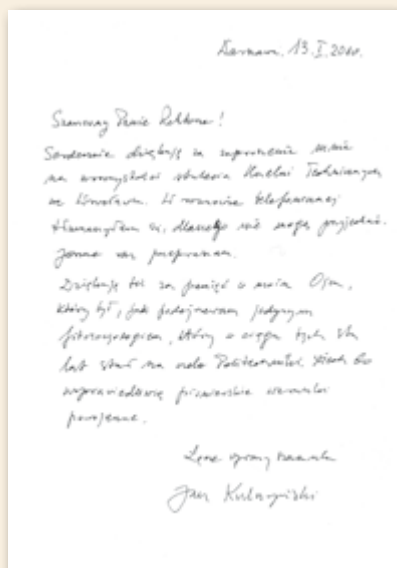 Warszawa, 13.X.2010.
Szanowny Panie Rektorze!
Serdecznie dziękuję za zaproszenie mnie
na uroczystości stulecia Uczelni Technicznych
we Wrocławiu. W rozmowie telefonicznej
tłumaczyłem się, dlaczego nie mogę przyjechać.
Jeszcze raz przepraszam.
Dziękuję też za pamięć o moim Ojcu,
który był, jak podejrzewam jedynym
fitosocjologiem, który w ciągu tych stu
lat stał na czele Politechniki. Niech Go
usprawiedliwią pionierskie warunki
powojenne.
Łączę wyrazy szacunku
Jan Kulczyński